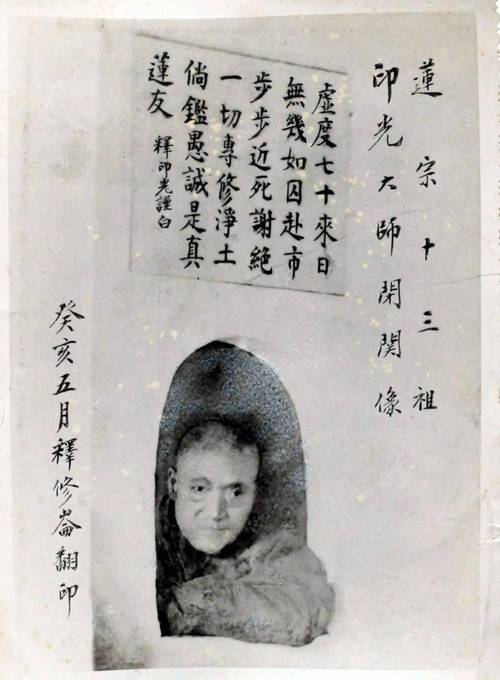 蓮宗十三祖
印光大師閉關像
虛度七十來日
無幾如囚赴市
步步近死謝絶
一切專修淨土
倘鑑愚誠是真
蓮友 釋印光謹白
癸亥五月釋修崙翻印